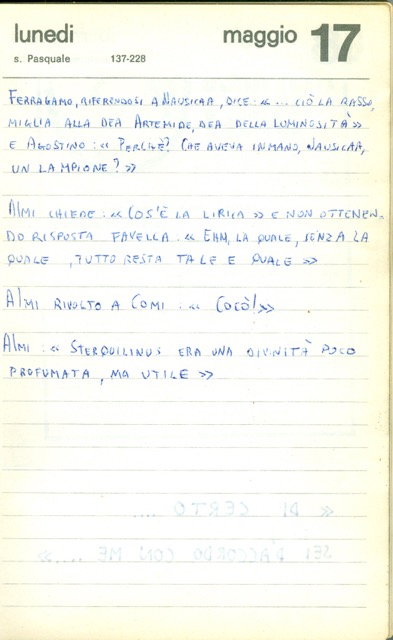 lunedì maggio 17
s. Pasquale 137-228
FERRAGAMO, RIFERENDOSI A NAUSICAA, DICE: «... CIÒ LA RASSO,
MIGLIA ALLA DEA ARTEMIDE, DEA DELLA LUMINOSITÀ»
E AGOSTINO: «PERCHÈ? CHE AVEVA IN MANO, NAUSICAA,
UN LAMPIONE?»
ALMI CHIEDE: «COS'È LA LIRICA» E NON OTTENEN-
DO RISPOSTA FAVELLA: «EHM, LA QUALE, SENZA LA
QUALE, TUTTO RESTA TALE E QUALE»
ALMI RIVOLTO A COMI: «COCÒ!»
ALMI: «STERQUILINUS ERA UNA DIVINITÀ POCO
PROFUMATA, MA UTILE»
« DI CERTO ....
SEI D'ACCORDO CON ME ....»